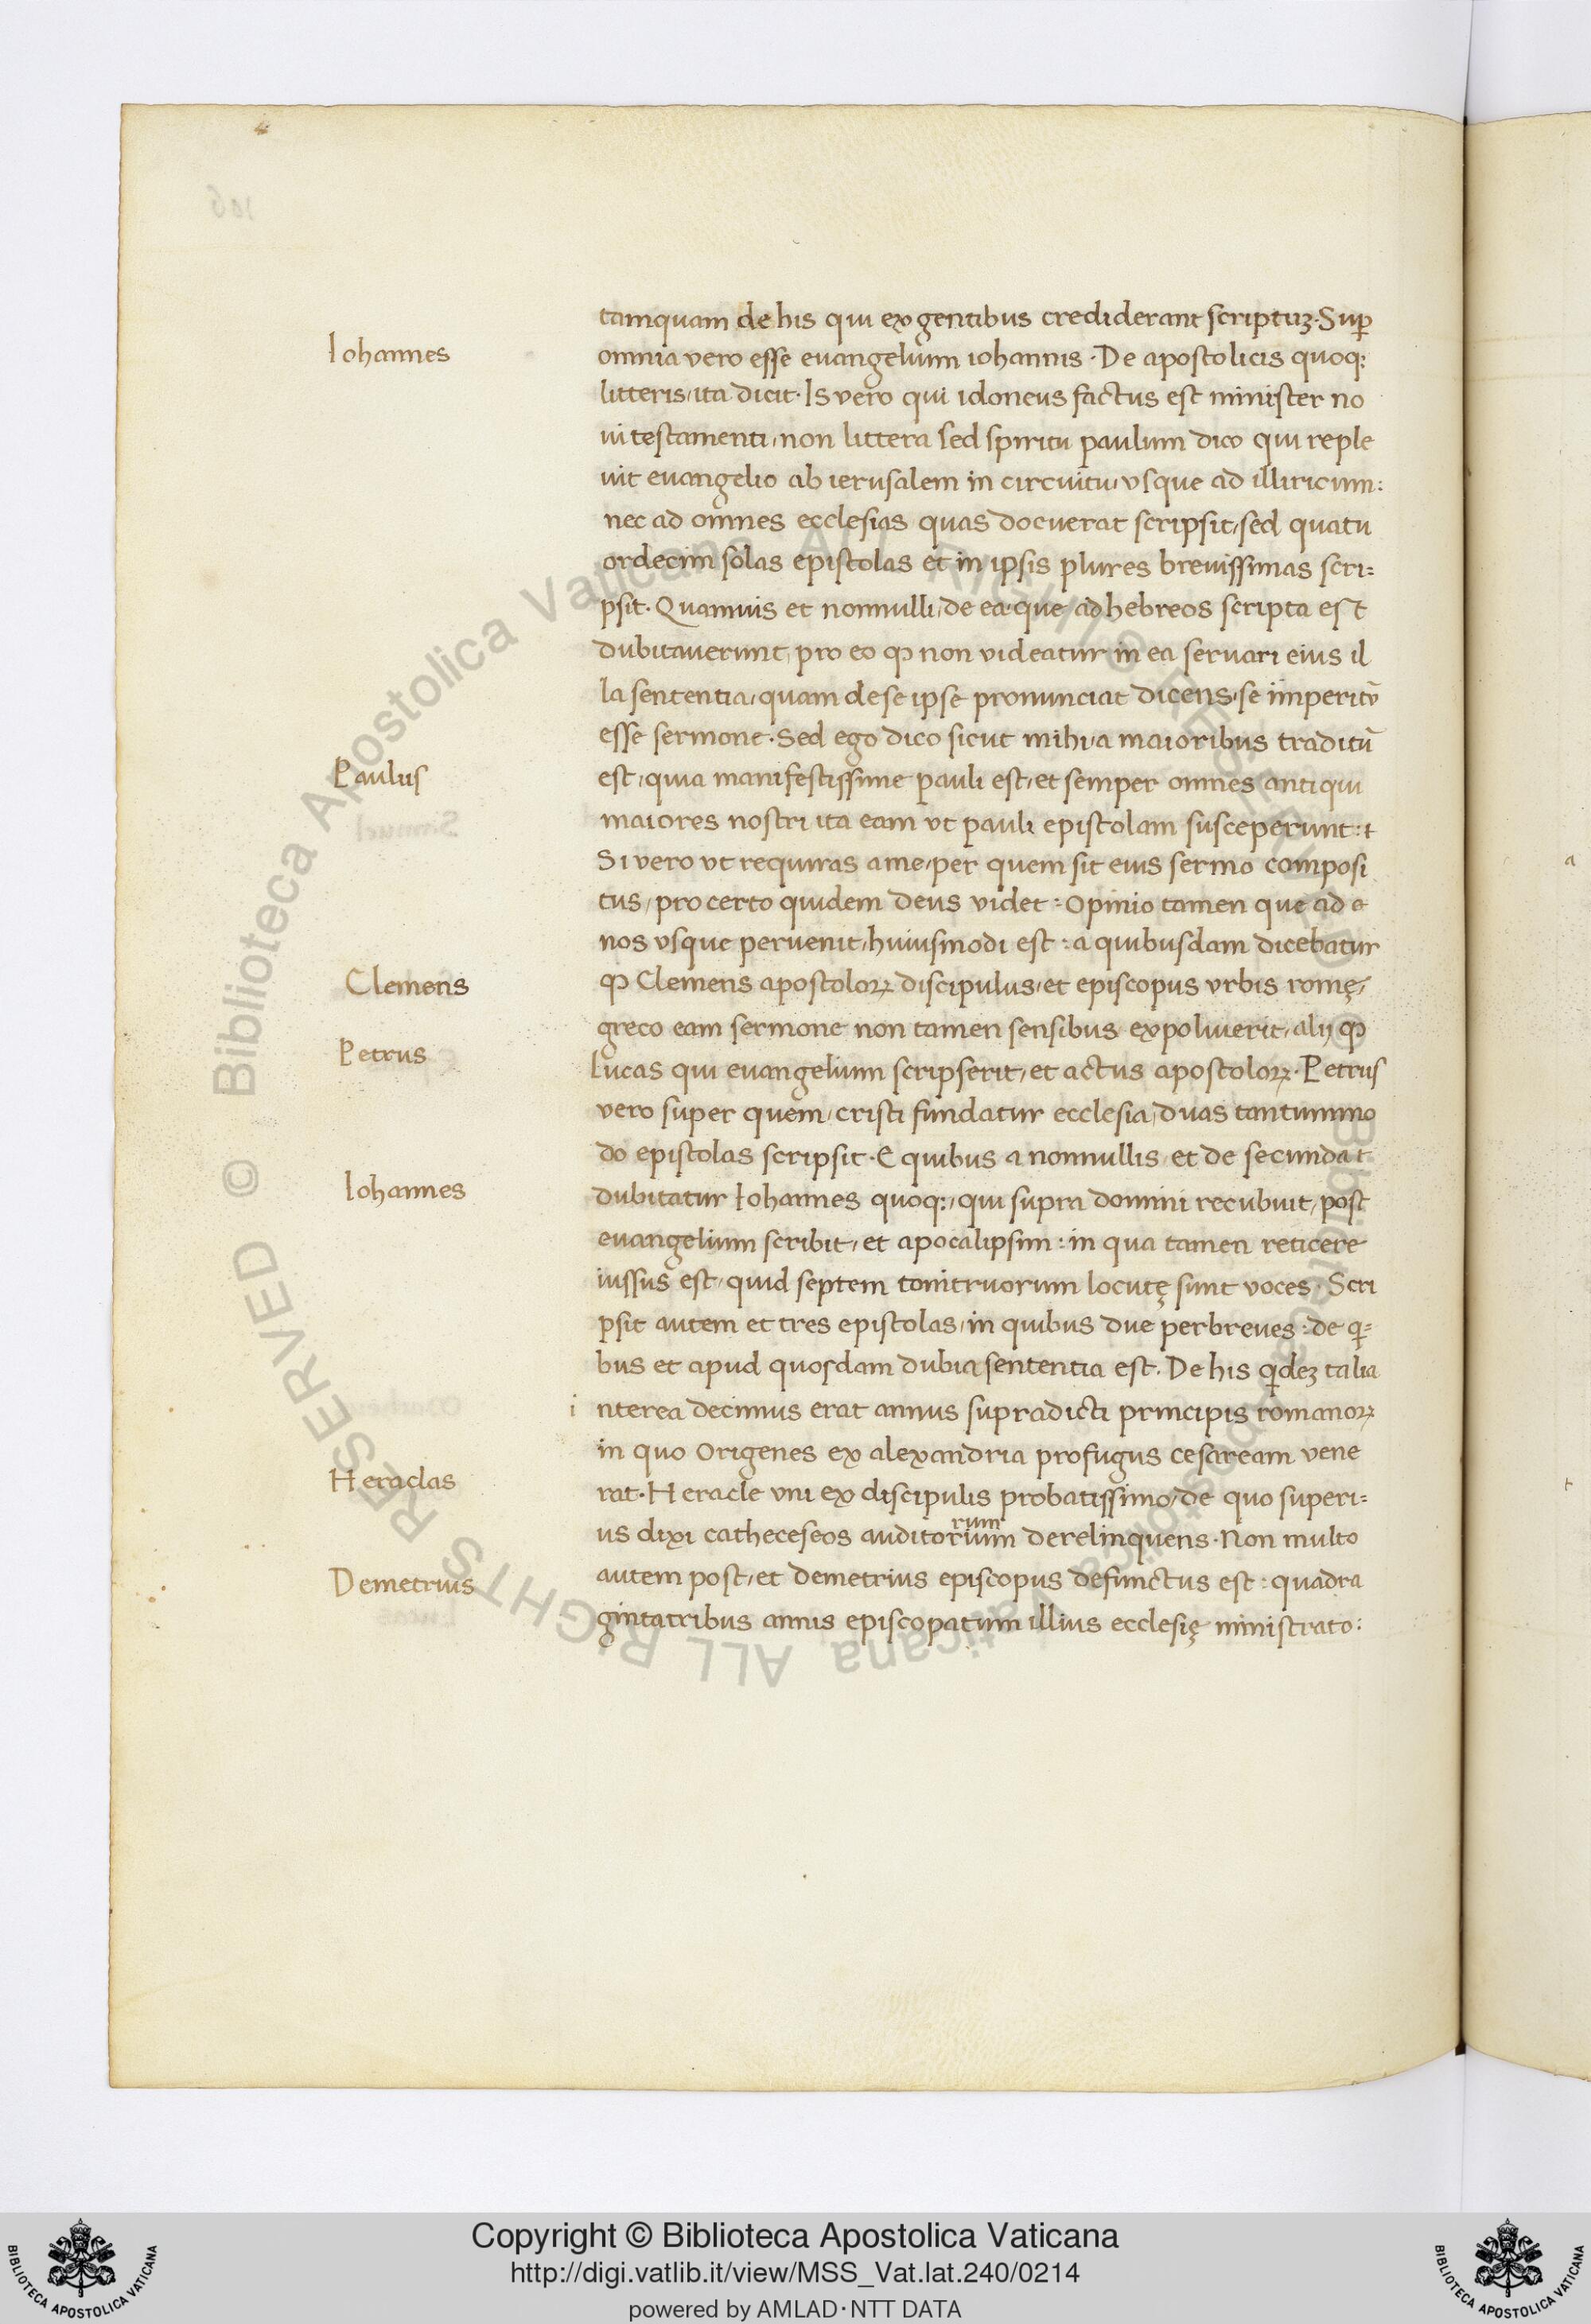 tamquam de his qui ex gentibus crediderant scriptuꝫ. Suꝑ
Iohannes
omnia vero esse euangelium iohannis. De apostolicis quoqꝫ
litteris, ita dicit. Is vero qui idoneus factus est minister no
ui testamenti, non littera sed spiritu paulum dico qui reple
uit euangelio ab ierusalem in circuitu, vsque ad illiricum:
nec ad omnes ecclesias quas docuerat scripsit, sed quatu
ordecim solas epistolas et in ipsis plures breuissimas scri=
psit. Quamuis et nonnulli, de ea, que ad hebreos scripta est
dubitauerunt, pro eo ꝙ non videatur in ea seruari eius il
la sententia, quam de se ipse pronunciat dicens, se imperitū
esse sermone. Sed ego dico sicut mihi, a maioribus traditū
Paulus
est, quia manifestissime pauli est, et semper omnes antiqui
maiores nostri ita eam vt pauli epistolam susceperunt: t
Si vero vt requiras a me, per quem sit eius sermo composi
tus, pro certo quidem deus videt: Opinio tamen que ad a
nos vsque peruenit, huiusmodi est: a quibusdam dicebatur
Clemens
ꝙ Clemens apostoloꝝ discipulus, et episcopus vrbis romę,
greco eam sermone non tamen sensibus expoliuerit, alij ꝙ
Petrus
Lucas qui euangelium scripserit, et actus apostoloꝝ. Petrus
vero super quem, cristi fundatur ecclesia, duas tantummo
do epistolas scripsit. E quibus a nonnullis, et de secunda t
Iohannes
dubitatur Iohannes quoqꝫ, qui supra domini recubuit, post
euangelium scribit, et apocalipsim: in qua tamen reticere
iussus est, quid septem tonitruorum locutę sunt voces. Scri
psit autem et tres epistolas, in quibus due perbreues: de qi=
bus et apud quosdam dubia sententia est. De his qideꝫ talia
i nterea decimus erat annus supradicti principis romanoꝝ
in quo Origenes ex alexandria profugus cesaream vene
Heraclas
rat. Heracle vni ex discipulis probatissimo, de quo superi=
rum
us dixi catheceseos auditorium derelinquens. Non multo
Demetrius
autem post, et demetrius episcopus defunctus est: quadra
gintatribus annis episcopatum illius ecclesię ministrato:
© Biblioteca Apostolica Vaticana ALL RIGHTS RESERVED
Copyright © Biblioteca Apostolica Vaticana
http://digi.vatlib.it/view/MSS_Vat.lat.240/0214
powered by AMLAD·NTT DATA
BIBLIOTECA APOSTOLICA VATICANA
BIBLIOTECA APOSTOLICA VATICANA